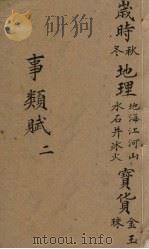 歲時 秋冬 地理 地海江河山 水石井冰火 寶貨 金玉珠
事類賦 二